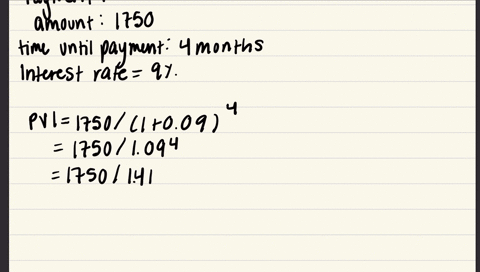 amount: 1750
time until payment: 4 months
Interest rate = 9%.
PV1 = 1750/(1+0.09)^4
= 1750/1.09^4
= 1750/1.41